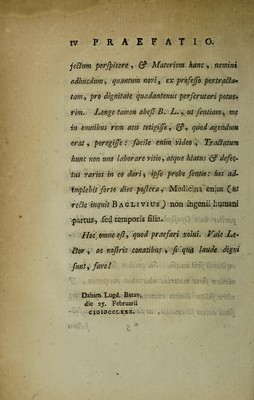 IV PRAEFATIO.
jectum perspicere, & Materiem hanc, nemini
adhucdum, quantum novi, ex professo pertracta-
tam, pro dignitate quadantenus perscrutari potue-
rim. Longe tamen abest B. L., ut sentiam, me
in omnibus rem acu tetigisse, &, quod agendum
erat, peregisse: facile enim video, Tractatum
hunc non uno laborare vitio, atque hiatus & defec-
tus varios in eo dari, ipse probe sentio: hos ad-
implebit forte dies postera, Medicina enim (ut
recte inquit BAGLIVIUS) non ingenii humani
partus, sed temporis filia.
Hoc omne est, quod praefari volui. Vale Le-
ctor, ac nostris conatibus, si qua laude digni
sunt, fave!
Dabam Lugd. Batav.
die 25. Februarii
CIƆIƆCCLXXX.